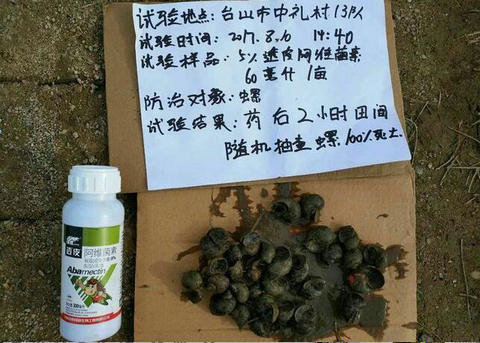 试验地点:台山市中礼村13队
试验时间:2017.8.10 14:40
试验样品:5%透皮阿维菌素
60毫升/亩
防治对象:螺
试验结果:药后2小时田间
随机抽查螺100%死亡.
透皮
阿维菌素
Abamectin